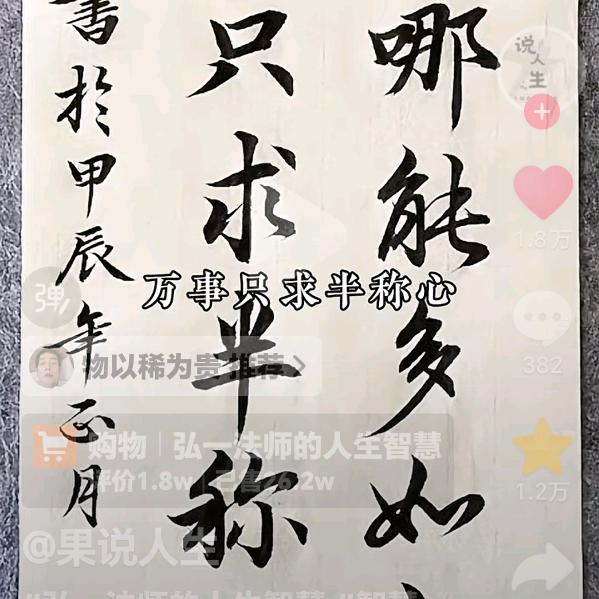 哪能多如
只求半称
書於甲辰年正月
万事只求半称心
说人生
1.8万
382
1.2万
弹
物以稀为贵 推荐
购物｜弘一法师的人生智慧
评价1.8w｜已售26.2w
@果说人生
#弘一法师的人生智慧 #智慧